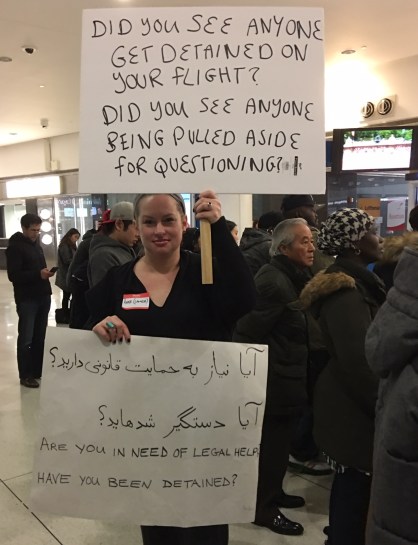 DID YOU SEE ANYONE
GET DETAINED ON
YOUR FLIGHT?
DID YOU SEE ANYONE
BEING PULLED ASIDE
FOR QUESTIONING?
آیا نیاز به حمایت قانونی دارید؟
آیا دستگیر شدهاید؟
ARE YOU IN NEED OF LEGAL HELP
HAVE YOU BEEN DETAINED?